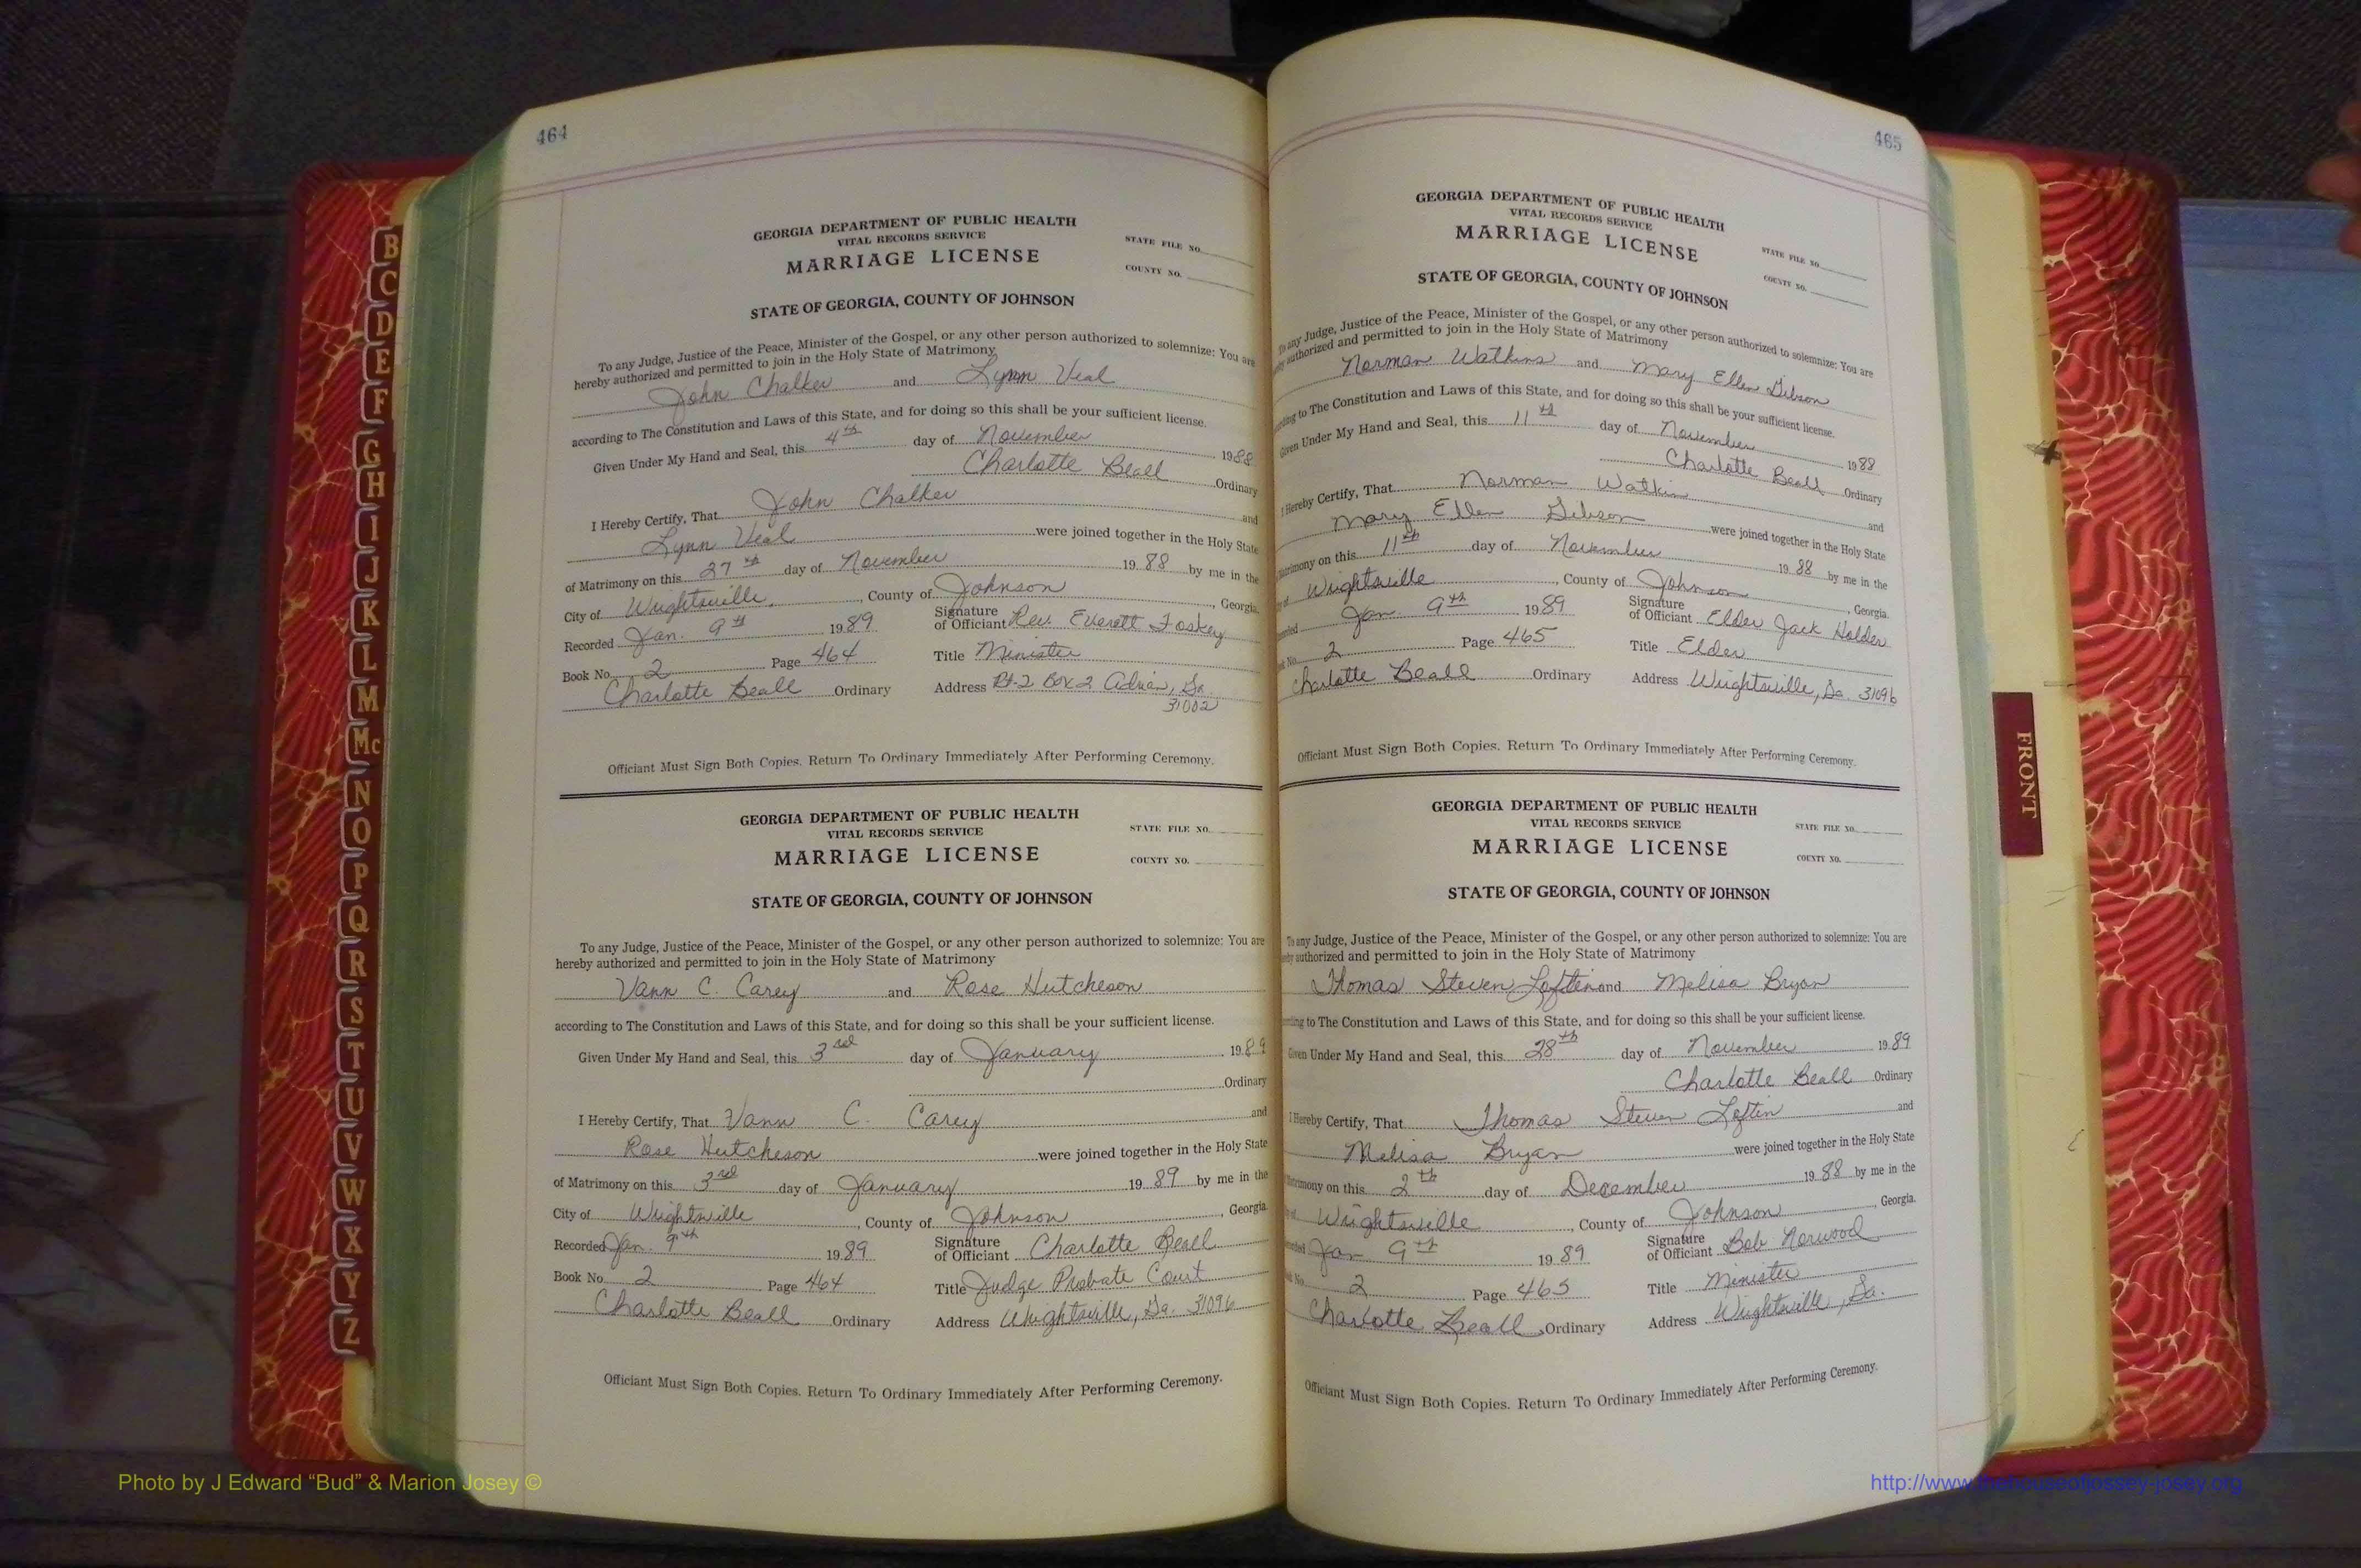 464
GEORGIA DEPARTMENT OF PUBLIC HEALTH
VITAL RECORDS SERVICE
MARRIAGE LICENSE
STATE FILE NO.
COUNTY NO.
STATE OF GEORGIA, COUNTY OF JOHNSON
To any Judge, Justice of the Peace, Minister of the Gospel, or any other person authorized to solemnize: You are
hereby authorized and permitted to join in the Holy State of Matrimony
John Chalker and Lynn Veal
according to The Constitution and Laws of this State, and for doing so this shall be your sufficient license.
Given Under My Hand and Seal, this 4th day of November 1988
Charlotte Beall Ordinary
I Hereby Certify, That John Chalker and
Lynn Veal were joined together in the Holy State
of Matrimony on this 27th day of November 1988 by me in the
City of Wrightsville, County of Johnson, Georgia
Recorded Jan. 9th 1989 Signature of Officiant Rev. Everett Foskey
Book No. 2 Page 464 Title Minister
Charlotte Beall Ordinary Address Rt-2 Box 2 Adrian, Ga.
31002
Officiant Must Sign Both Copies. Return To Ordinary Immediately After Performing Ceremony.
GEORGIA DEPARTMENT OF PUBLIC HEALTH
VITAL RECORDS SERVICE
MARRIAGE LICENSE
STATE FILE NO.
COUNTY NO.
STATE OF GEORGIA, COUNTY OF JOHNSON
To any Judge, Justice of the Peace, Minister of the Gospel, or any other person authorized to solemnize: You are
hereby authorized and permitted to join in the Holy State of Matrimony
Vann C. Carey and Rose Hutcheson
according to The Constitution and Laws of this State, and for doing so this shall be your sufficient license.
Given Under My Hand and Seal, this 3rd day of January 1989
Ordinary
I Hereby Certify, That Vann C. Carey and
Rose Hutcheson were joined together in the Holy State
of Matrimony on this 3rd day of January 1989 by me in the
City of Wrightsville, County of Johnson, Georgia
Recorded Jan. 9th 1989 Signature of Officiant Charlotte Beall
Book No. 2 Page 464 Title Judge Probate Court
Charlotte Beall Ordinary Address Wrightsville, Ga. 31096
Officiant Must Sign Both Copies. Return To Ordinary Immediately After Performing Ceremony.
465
GEORGIA DEPARTMENT OF PUBLIC HEALTH
VITAL RECORDS SERVICE
MARRIAGE LICENSE
STATE FILE NO.
COUNTY NO.
STATE OF GEORGIA, COUNTY OF JOHNSON
To any Judge, Justice of the Peace, Minister of the Gospel, or any other person authorized to solemnize: You are
authorized and permitted to join in the Holy State of Matrimony
Norman Watkins and Mary Ellen Gibson
to The Constitution and Laws of this State, and for doing so this shall be your sufficient license.
Given Under My Hand and Seal, this 11th day of November 1988
Charlotte Beall Ordinary
I Hereby Certify, That Norman Watkin and
Mary Ellen Gibson were joined together in the Holy State
Matrimony on this 11th day of November 1988 by me in the
Wrightsville, County of Johnson, Georgia.
Jan. 9th 1989 Signature of Officiant Elder Jack Holder
No. 2 Page 465 Title Elder
Charlotte Beall Ordinary Address Wrightsville, Ga. 31096
Officiant Must Sign Both Copies. Return To Ordinary Immediately After Performing Ceremony.
GEORGIA DEPARTMENT OF PUBLIC HEALTH
VITAL RECORDS SERVICE
MARRIAGE LICENSE
STATE FILE NO.
COUNTY NO.
STATE OF GEORGIA, COUNTY OF JOHNSON
To any Judge, Justice of the Peace, Minister of the Gospel, or any other person authorized to solemnize: You are
authorized and permitted to join in the Holy State of Matrimony
Thomas Steven Loftin and Melisa Bryan
to The Constitution and Laws of this State, and for doing so this shall be your sufficient license.
Given Under My Hand and Seal, this 28th day of November 1989
Charlotte Beall Ordinary
I Hereby Certify, That Thomas Steven Loftin and
Melisa Bryan were joined together in the Holy State
Matrimony on this 2th day of December 1988 by me in the
Wrightsville, County of Johnson, Georgia.
Jan 9th 1989 Signature of Officiant Bob Norwood
No. 2 Page 465 Title Minister
Charlotte Beall Ordinary Address Wrightsville, Ga.
Officiant Must Sign Both Copies. Return To Ordinary Immediately After Performing Ceremony.
B
C
D
E
F
G
H
I
J
K
L
M
Mc
N
O
P
Q
R
S
T
U
V
W
X
Y
Z
FRONT
Photo by J Edward “Bud” & Marion Josey ©
http://www.thehouseofjossey-josey.org